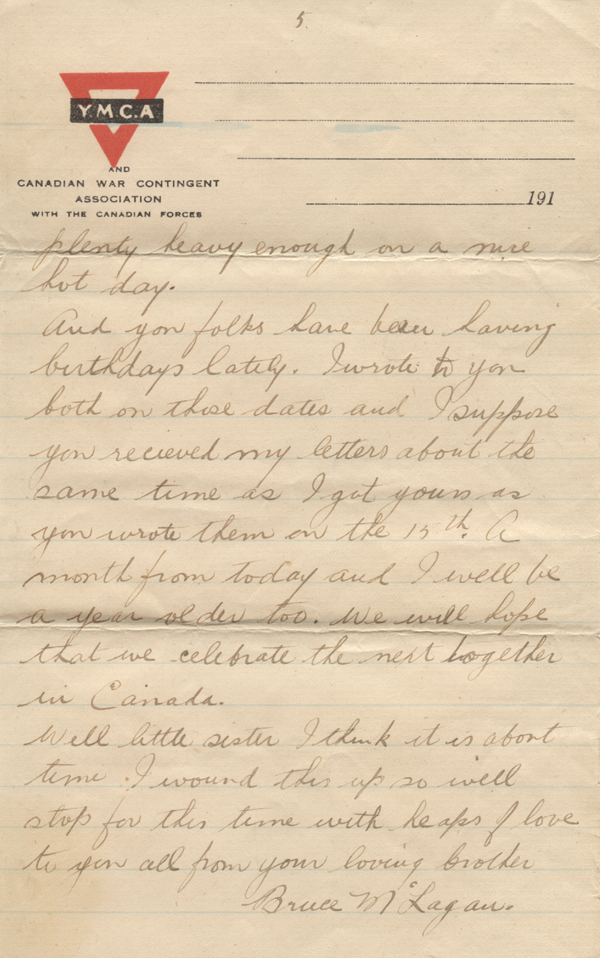 5.
Y.M.C.A
AND
CANADIAN WAR CONTINGENT
ASSOCIATION
WITH THE CANADIAN FORCES
191
plenty heavy enough on a nice
hot day.
And you folks have been having
birthdays lately. I wrote to you
both on those dates and I suppose
you recieved my letters about the
same time as I got yours as
you wrote them on the 15th. A
month from today and I will be
a year older too. We will hope
that we celebrate the next together
in Canada.
Well little sister I think it is about
time I wound this up so will
stop for this time with heaps of love
to you all from your loving brother
Bruce McLagan.